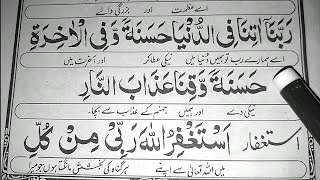 اے عظمت اور بزرگی والے
رَبَّنَا اٰتِنَا فِی الدُّنْیَا حَسَنَةً وَّ فِی الْاٰخِرَةِ
اے ہمارے رب تو ہمیں دنیا میں نیکی عطا کر اور آخرت میں
حَسَنَةً وَّقِنَا عَذَابَ النَّارِ
نیکی دے اور ہمیں جہنم کے عذاب سے بچا۔
استغفار اَسْتَغْفِرُ اللّٰهَ رَبِّیْ مِنْ كُلِّ
میں اللہ تعالیٰ سے اپنے ہر گناہ کی بخشش مانگتا ہوں جو میرا